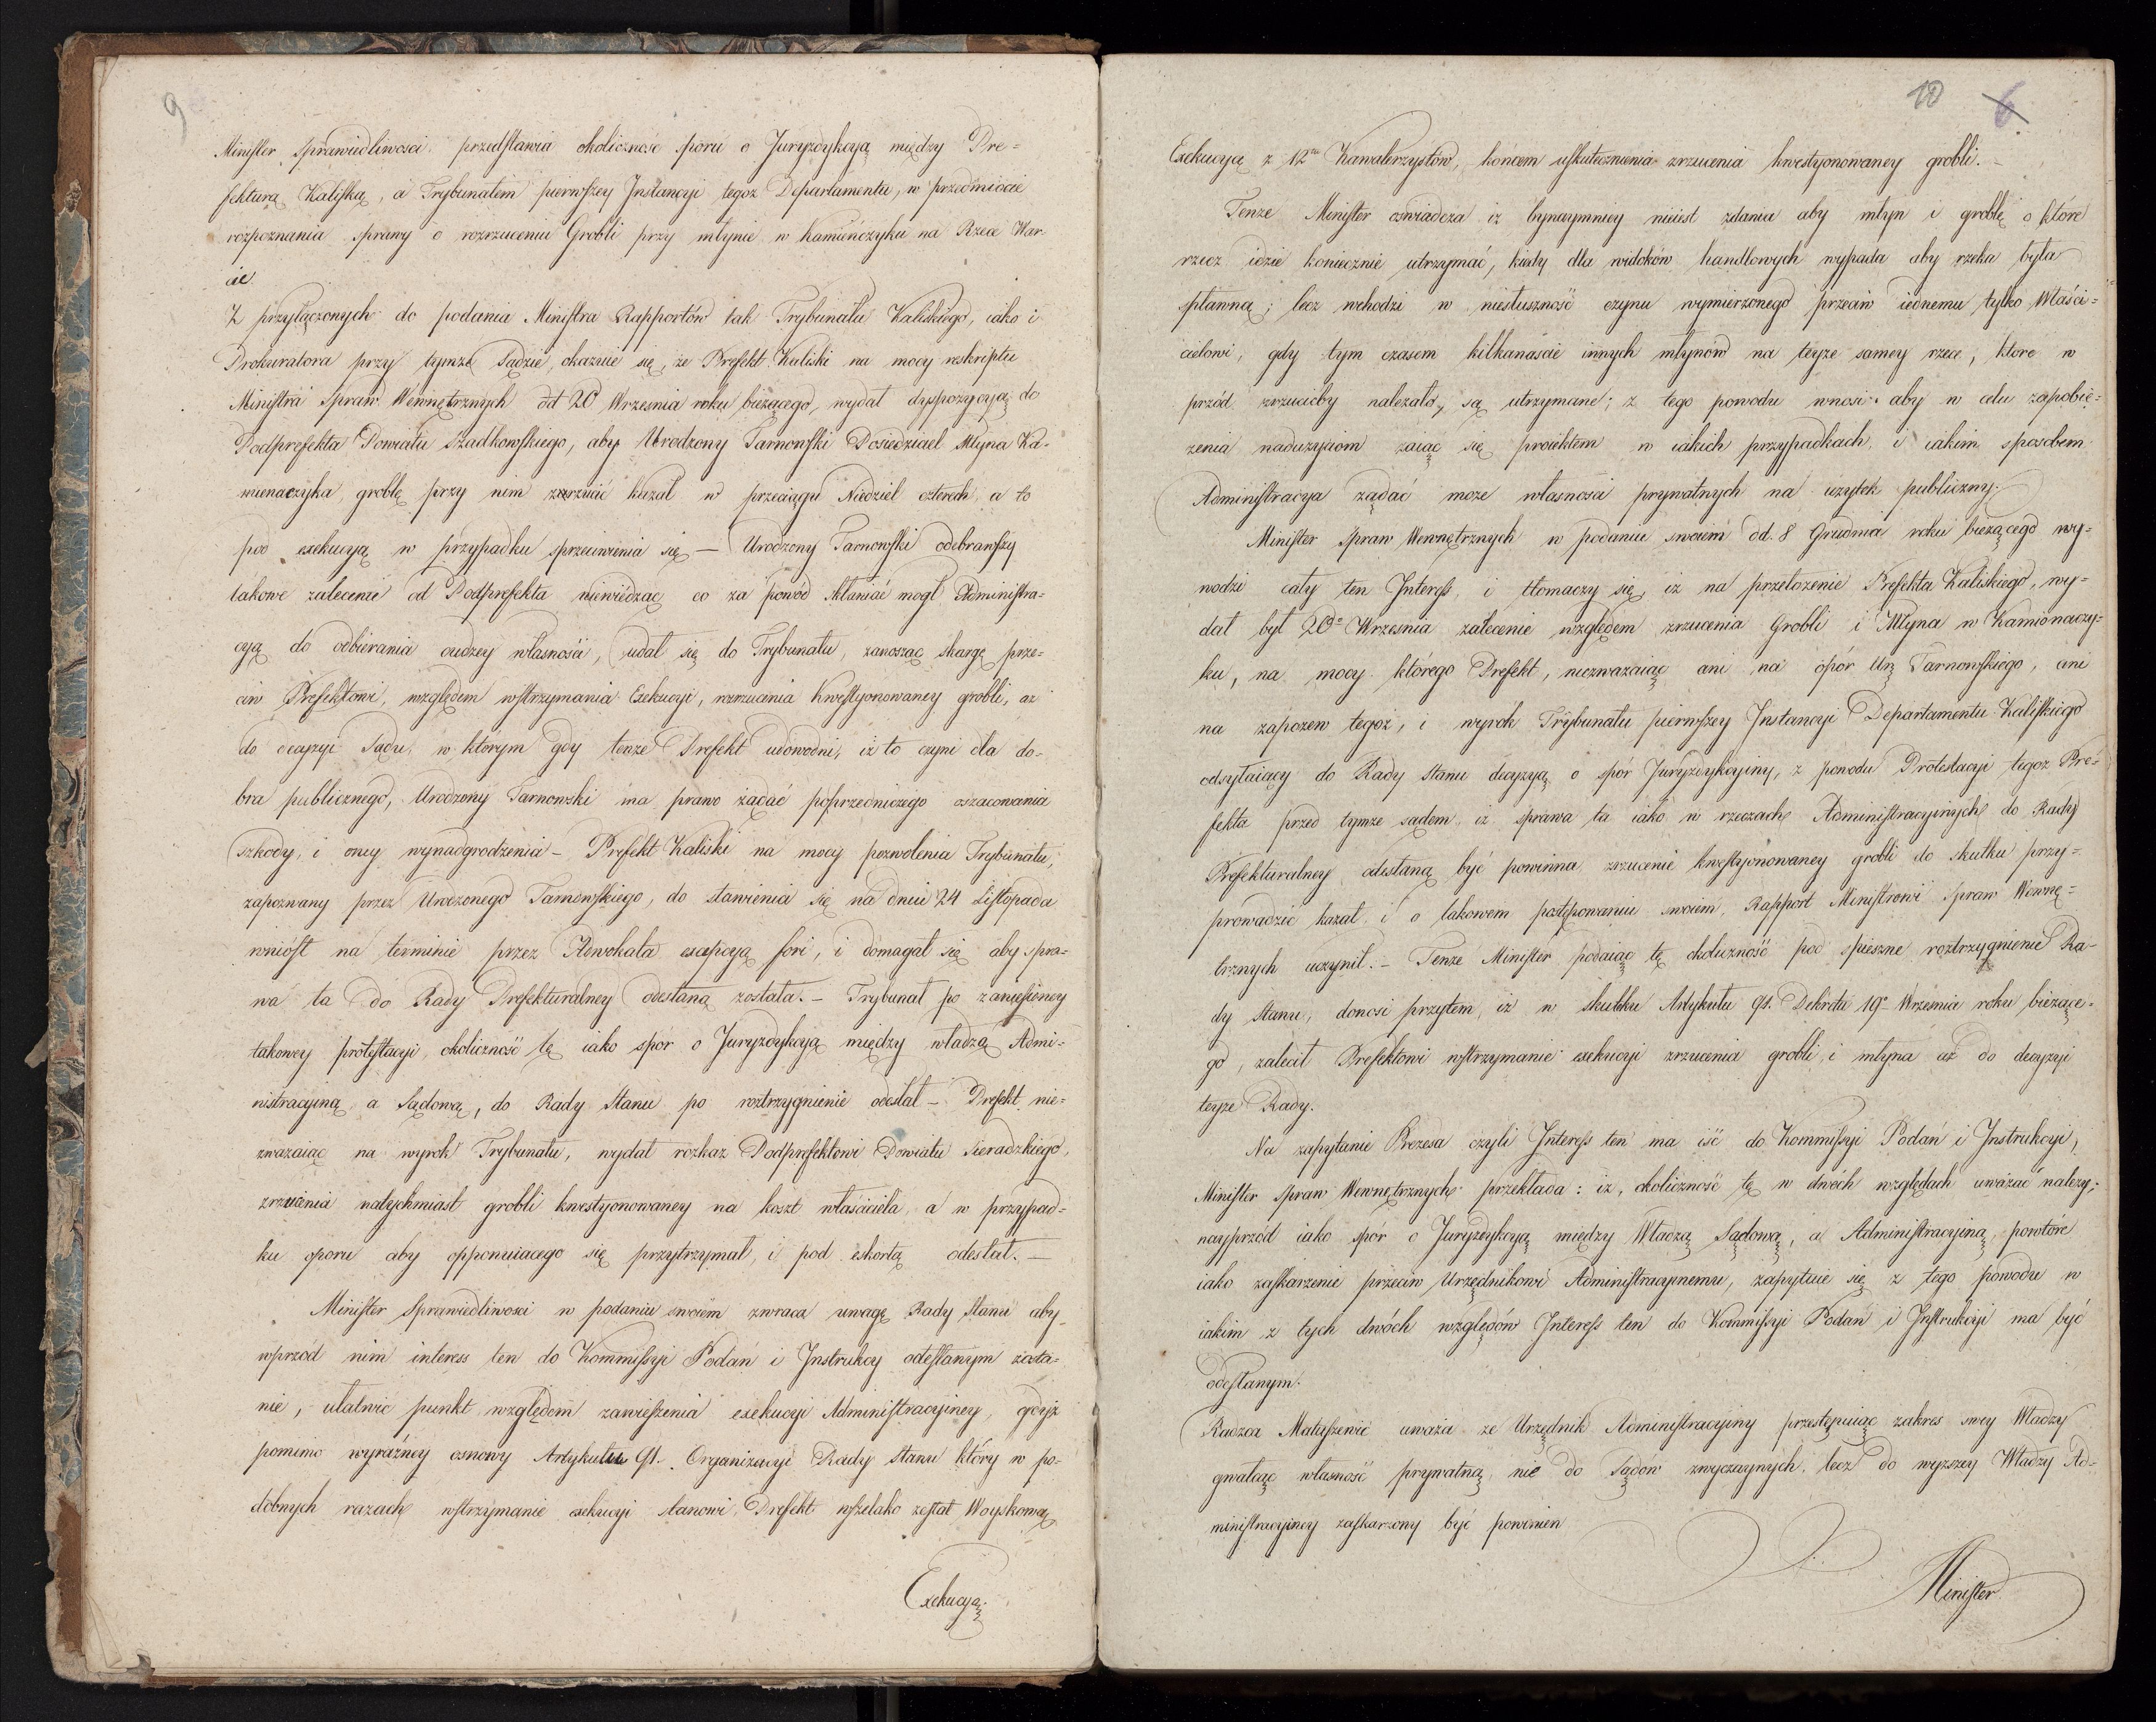 9
Minister Sprawiedliwosci przedstawia okoliczność sporu o Juryzdykcyą między Pre=
fekturą Kaliską, a Trybunałem pierwszey Instancyi tegoż Departamentu, w przedmiocie
rozpoznania sprawy o rozrzuceniu Grobli przy młynie w Kamieńczyku na Rzece War-
cie.
Z przyłączonych do podania Ministra Rapportów tak Trybunału Kaliskiego, iako i
Prokuratora przy tymże Sądzie, okazuie się, że Prefekt Kaliski na mocy reskriptu
Ministra Spraw Wewnętrznych od 20 Wrzesnia roku bieżącego, wydał dyspozycyą do
Podprefekta Powiatu Szadkowskiego, aby Urodzony Tarnowski Dosiedziciel Młyna Ka-
mienaczyka groblę przy nim zrzucić kazał w przeciągu Niedziel czterech, a to
pod exekucyą w przypadku sprzeciwienia się — Urodzony Tarnowski odebrawszy
takowe zalecenie od Podprefekta niewiedząc co za powód skłaniać mogł Administra-
cyą do odbierania cudzey własności, udał się do Trybunału, zanosząc skargę prze-
ciw Prefektowi, względem wstrzymania Exekucyi, rozrzucenia kwestyonowaney grobli, aż
do decyzyi Sądu, w którym gdy tenże Prefekt udowodni, iż to czyni dla do-
bra publicznego, Urodzony Tarnowski ma prawo żądać poprzedniczego oszacowania
szkody, i oney wynadgrodzenia — Prefekt Kaliski na mocy pozwolenia Trybunału,
zapozwany przez Urodzonego Tarnowskiego, do stawienia się na dniu 24 Listopada
wniósł na terminie przez Adwokata excepcyą fori, i domagał się aby spra-
wa ta do Rady Prefekturalney odesłaną została. — Trybunał po zaniesioney
takowey protestacyi, okoliczność tę iako spór o Juryzdykcyą między władzą Admi-
nistracyiną, a Sądową, do Rady Stanu po roztrzygnienie odesłał — Prefekt nie=
zważaiąc na wyrok Trybunału, wydał rozkaz Podprefektowi Powiatu Sieradzkiego,
zrzucenia natychmiast grobli kwestyonowaney na koszt właściciela, a w przypad=
ku oporu aby opponuiacego się przytrzymał, i pod eskortą odesłał. —
Minister Sprawiedliwosci w podaniu swoiem zwraca uwagę Rady Stanu aby
wprzód nim interess ten do Kommissyi Podań i Instrukcy odesłanym zosta-
nie, ułatwić punkt względem zawieszenia exekucyi Administracyiney, gdyż
pomimo wyraźney osnowy Artykułu 91. Organizacyi Rady Stanu który w po-
dobnych razach wstrzymanie exekucyi stanowi, Prefekt wszelako zesłał Woyskową
Exekucyą.
10 6
Exekucyą z 12tu Kawalerzystów, końcem uskutecznienia zrzucenia kwestyonowaney grobli. —
Tenże Minister oswiadcza iż bynaymniey nieiest zdania aby młyn i groblę o które
rzecz idzie koniecznie utrzymać, kiedy dla widoków handlowych wypada aby rzeka była
spławną; lecz wchodzi w niesłuszność czynu wymierzonego przeciw iednemu tylko Właści=
cielowi, gdy tym czasem kilkanaście innych młynów na teyże samey rzece, które w
przód zrzucićby należało, są utrzymane; z tego powodu wnosi aby w celu zapobie=
żenia nadużyciom zaiąć się proiektem w iakich przypadkach i iakim sposobem
Administracya żądać może własnosci prywatnych na użytek publiczny.
Minister Spraw Wewnętrznych w podaniu swoiem od. 8 Grudnia roku bieżącego wy=
wodzi cały ten Interess, i tłomaczy się, iż na przełożenie Prefekta Kaliskiego, wy=
dał był 20o Wrzesnia zalecenie względem zrzucenia Grobli i Młyna w Kamionaczy=
ku, na mocy którego Prefekt, niezważaiąc ani na opór Ur. Tarnowskiego, ani
na zapozew tegoż, i wyrok Trybunału pierwszey Instancyi Departamentu Kaliskiego
odsyłaiący do Rady Stanu decyzyą o spór Juryzdykcyiny, z powodu Protestacyi tegoż Pre=
fekta przed tymże sądem, iż sprawa ta iako w rzeczach Administracyinych do Rady
Prefekturalney odesłaną być powinna, zrzucenie kwestyonowaney grobli do skutku przy=
prowadzić kazał, i o takowem postępowaniu swoiem, Rapport Ministrowi Spraw Wewnę=
trznych uczynił. — Tenże Minister podaiąc tę okoliczność pod spieszne roztrzygnienie Ra-
dy Stanu, donosi przytem, iż w skutku Artykułu 91. Dekretu 19o Wrzesnia roku bieżące=
go, zalecił Prefektowi wstrzymanie exekucyi zrzucenia grobli, i młyna aż do decyzyi
teyże Rady.
Na zapytanie Prezesa czyli Interess ten ma iść do Kommissyi Podań i Instrukcyi,
Minister Spraw Wewnętrznych przekłada: iż, okoliczność tę w dwóch względach uważać należy;
nayprzód iako spór o Juryzdykcyą między Władzą Sądową, a Administracyiną, powtóre
iako zaskarżenie przeciw Urzędnikowi Administracyinemu, zapytuie się z tego powodu w
iakim z tych dwóch względów Interess ten do Kommissyi Podań i Instrukcyi ma być
odesłanym.
Radzca Matuszewic uważa że Urzędnik Administracyiny przestępuiąc zakres swey Władzy
gwałcąc własność prywatną, nie do Sądów zwyczaynych, lecz do wyższey Władzy Ad-
ministracyiney zaskarżony być powinien
Minister